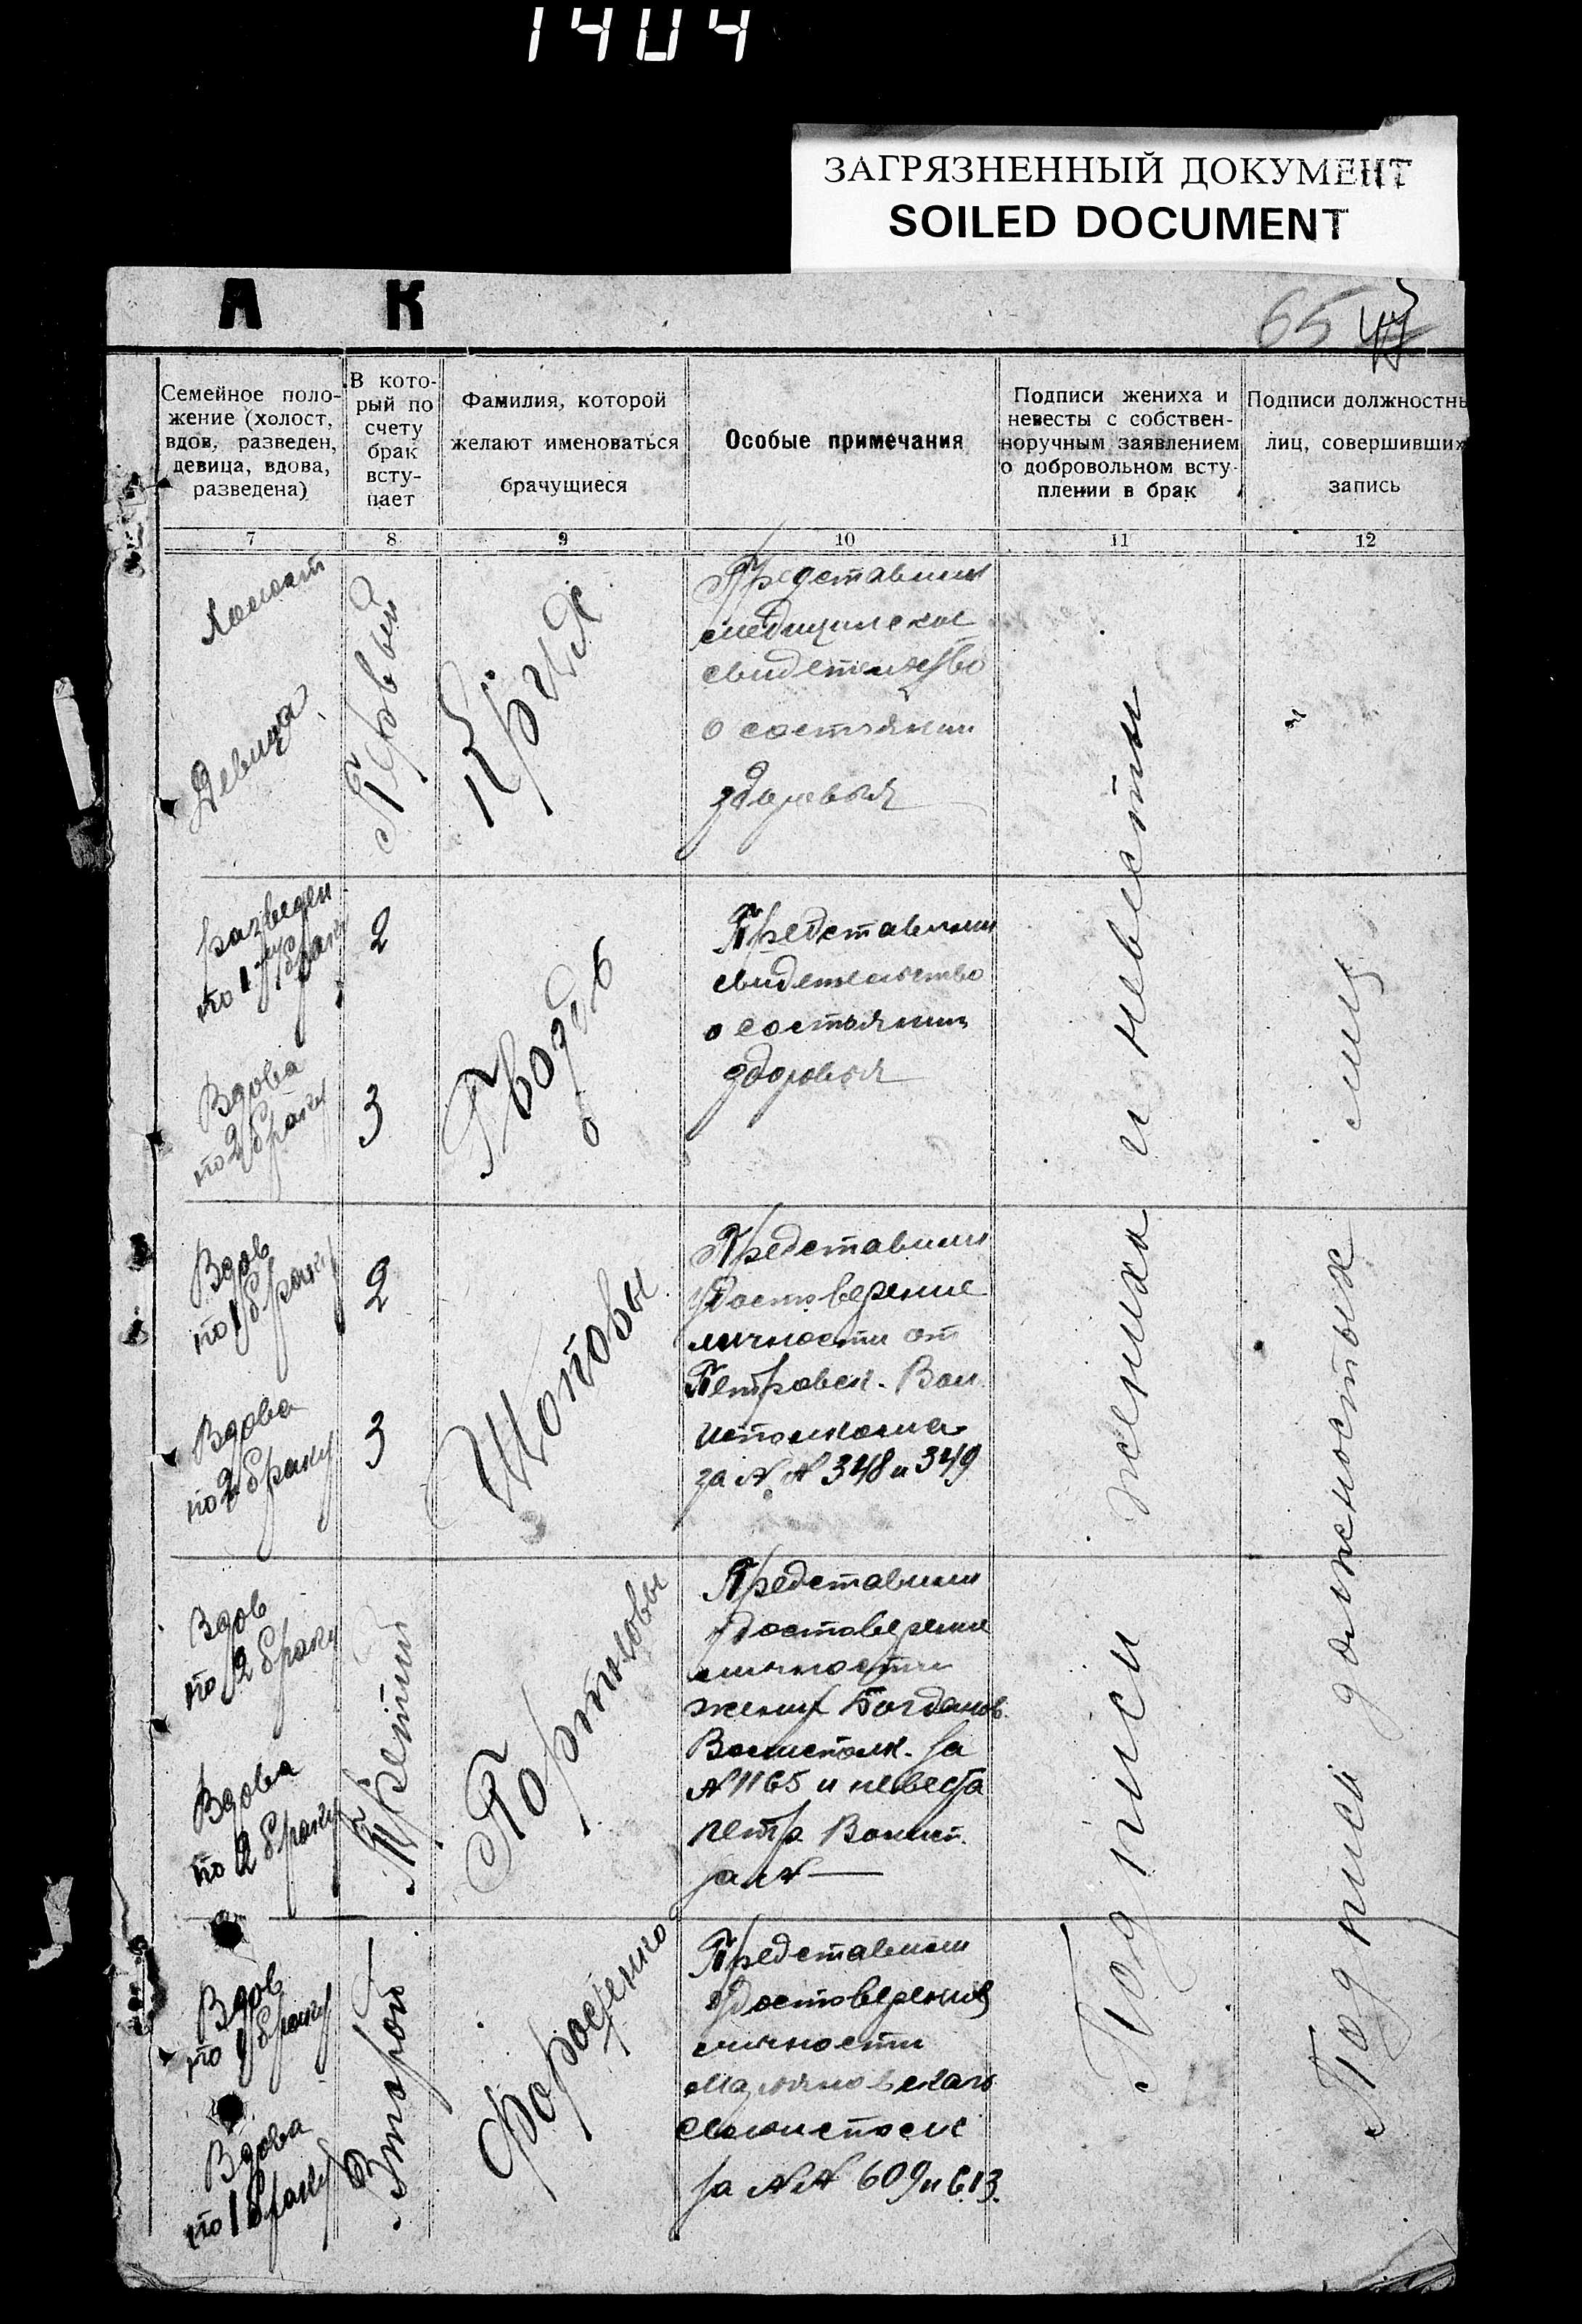 1404
ЗАГРЯЗНЕННЫЙ ДОКУМЕНТ
SOILED DOCUMENT
А К
65
Семейное поло-
жение (холост,
вдов, разведен,
девица, вдова,
разведена)
В кото-
рый по
счету
брак
всту-
пает
Фамилия, которой
желают именоваться
брачущиеся
Особые примечания
Подписи жениха и
невесты с собствен-
норучным заявлением
о добровольном всту-
плении в брак
Подписи должностны
лиц, совершивших
запись
7 8 9 10 11 12
Холост
Девица
Первый
Представили
медицинское
свидетельство
о состоянии
здоровья
разведен
по 1 браку
2
Вдова
по 2 браку
3
Гвоздь
Представили
свидетельство
о состоянии
здоровья
Вдов
по 1 браку
2
Вдова
по 2 браку
3
Щоповы
Представили
удостоверение
личности от
Петровск. Вол.
исполкома
за N N 348 и 349
Вдов
по 2 браку
Вдова
по 2 браку
Третий
Портновы
Представили
удостоверение
личности
жених Богданов.
Волисполк. за
N 1165 и невеста
петр. Волисп.
за N —
Вдов
по 1 браку
Вдова
по 1 браку
Второй
Форостенко
Представили
удостоверение
личности
за N N 609 и 613.
Подписи жениха и невесты
Подписи должностных лиц